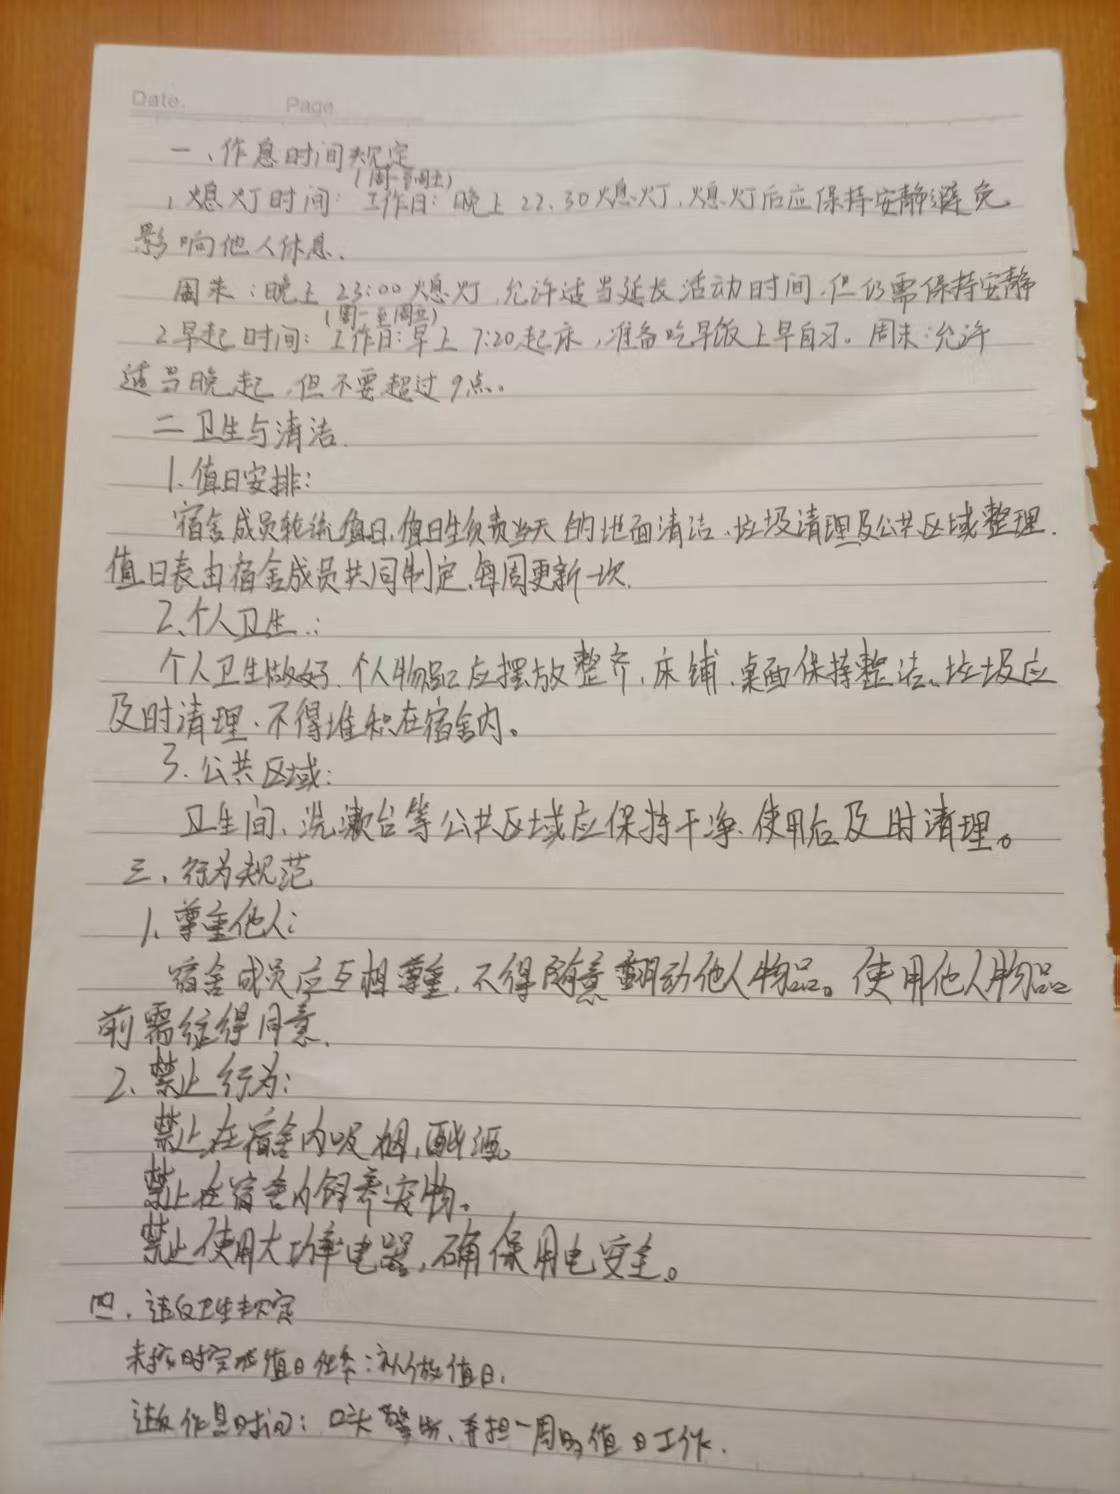 Date. Page
一、作息时间规定
(周一至周五)
1、熄灯时间：工作日：晚上22:30熄灯，熄灯后应保持安静避免
影响他人休息.
周末：晚上23:00熄灯，允许适当延长活动时间，但仍需保持安静
(周一至周五)
2.早起时间：工作日：早上7:20起床，准备吃早饭上早自习。周末：允许
适当晚起，但不要超过9点。
二 卫生与清洁.
1.值日安排：
宿舍成员轮流值日，值日生负责当天的地面清洁、垃圾清理及公共区域整理.
值日表由宿舍成员共同制定，每周更新一次.
2、个人卫生：
个人卫生做好，个人物品应摆放整齐，床铺、桌面保持整洁、垃圾应
及时清理，不得堆积在宿舍内。
3.公共区域：
卫生间、洗漱台等公共区域应保持干净，使用后及时清理。
三、行为规范
1、尊重他人：
宿舍成员应互相尊重，不得随意翻动他人物品。使用他人物品
前需经得同意.
2、禁止行为：
禁止在宿舍内吸烟，酗酒。
禁止在宿舍内饲养宠物。
禁止使用大功率电器，确保用电安全。
四、违反卫生规定
未按时完成值日任务：补做值日.
违反作息时间：口头警告，承担一周的值日工作.